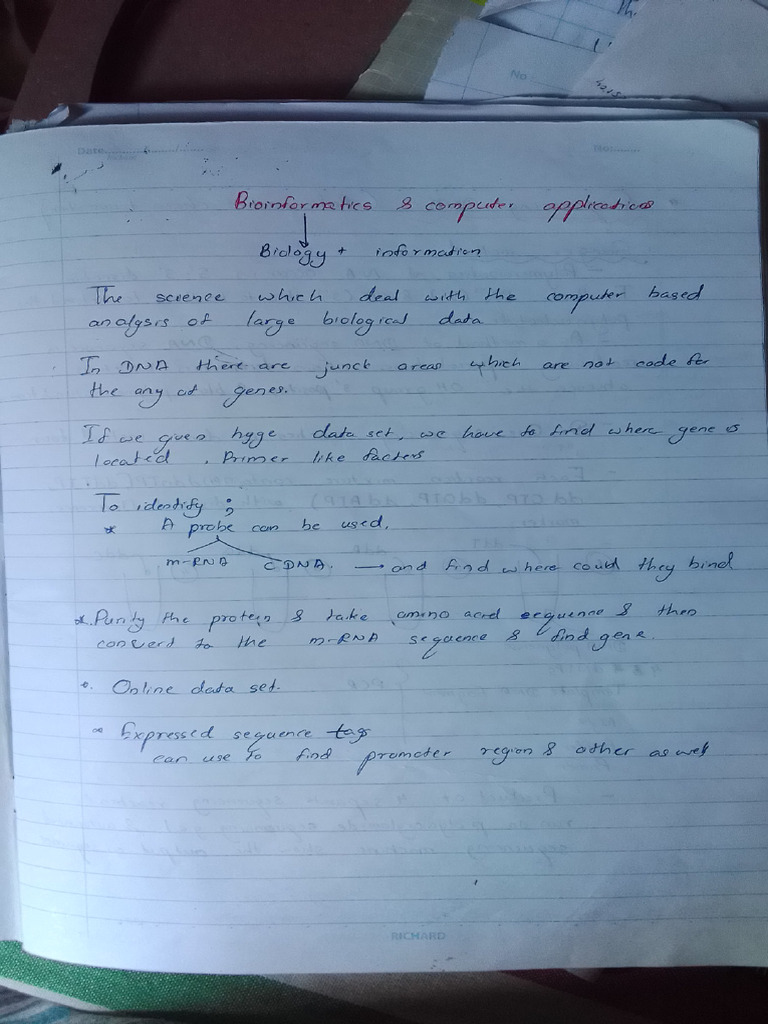 No
4215
Date
Bioinformatics & computer applications
Biology + information
The science which deal with the computer based
analysis of large biological data
In DNA there are junck areas which are not code for
the any of genes.
If we given hyge data set, we have to find where gene is
located. Primer like factors
To identify ;
* A probe can be used.
m-RNA cDNA. → and find where could they bind
*. Purity the protein & take amino acid sequence & then
convert to the m-RNA sequence & find gene.
*. Online data set.
* Expressed sequence tags
can use to find promoter region & other as well
RICHARD